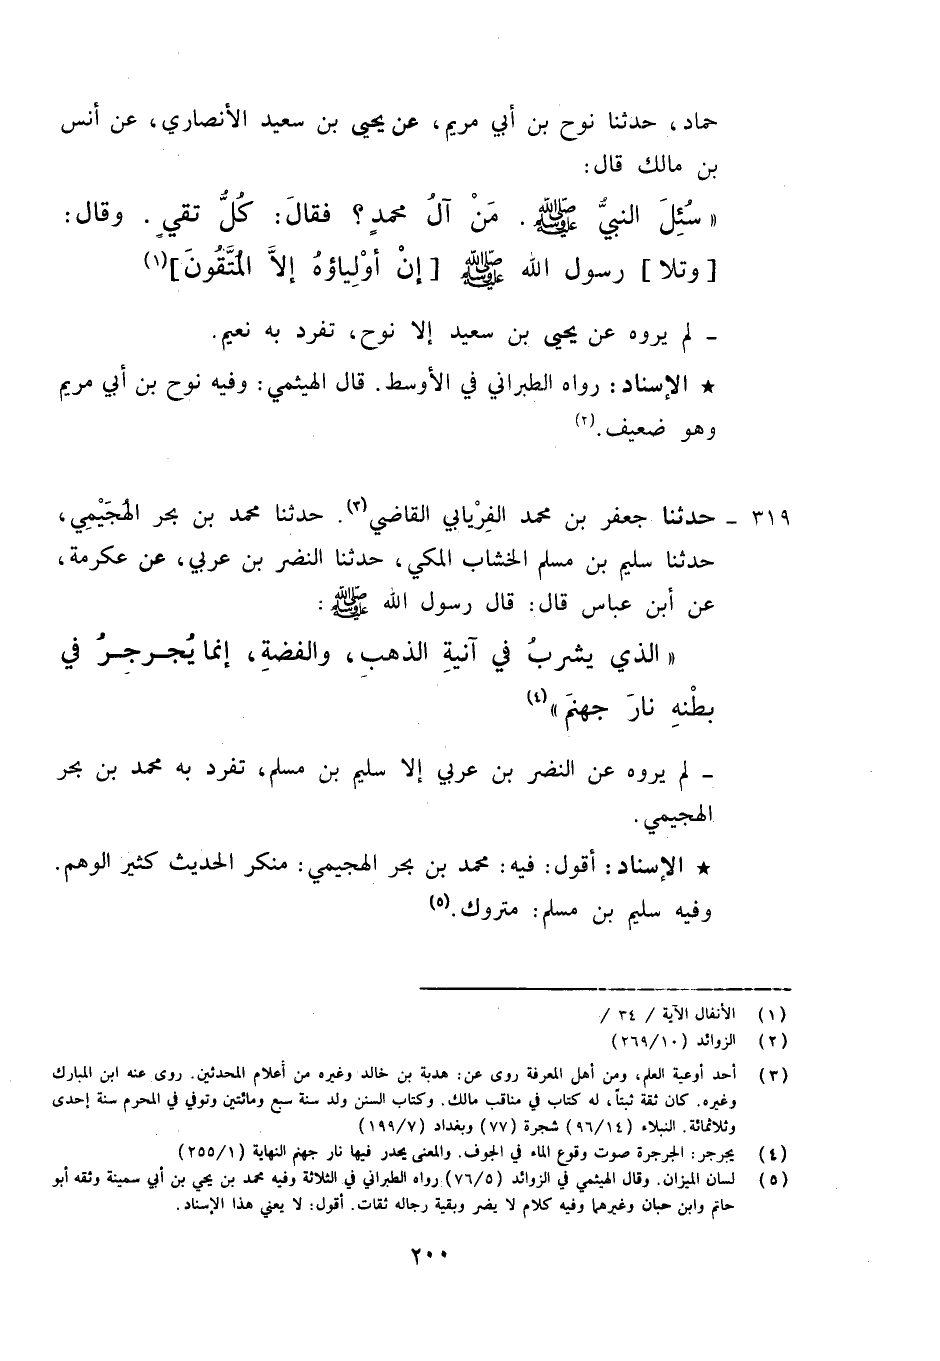 حماد، حدثنا نوح بن أبي مريم، عن يحيى بن سعيد الأنصاري، عن أنس
بن مالك قال:
« سُئِلَ النبيُّ ﷺ. مَنْ آلُ محمدٍ؟ فقالَ: كُلُّ تقيٍ. وقال:
[وتلا] رسول الله ﷺ [إنْ أوْلِياؤهُ إلاَّ المُتَّقُونَ](١)
ـ لم يروه عن يحيى بن سعيد إلا نوح، تفرد به نعيم.
★ الإسناد: رواه الطبراني في الأوسط. قال الهيثمي: وفيه نوح بن أبي مريم
وهو ضعيف.(٢)
٣١٩ ـ حدثنا جعفر بن محمد الفِرْيابي القاضي(٣). حدثنا محمد بن بحر الهُجَيْمِي،
حدثنا سليم بن مسلم الخشاب المكي، حدثنا النضر بن عربي، عن عكرمة،
عن أبن عباس قال: قال رسول الله ﷺ:
« الذي يشربُ في آنيةِ الذهبِ، والفضةِ، إنما يُجـرجِـرُ في
بطْنهِ نارَ جهنمَ»(٤)
ـ لم يروه عن النضر بن عربي إلا سليم بن مسلم، تفرد به محمد بن بحر
الهجيمي.
★ الإسناد: أقول: فيه: محمد بن بحر الهجيمي: منكر الحديث كثير الوهم.
وفيه سليم بن مسلم: متروك.(٥)
(١) الأنفال الآية / ٣٤ /
(٢) الزوائد (٢٦٩/١٠)
(٣) أحد أوعية العلم، ومن أهل المعرفة روى عن: هدبة بن خالد وغيره من أعلام المحدثين. روى عنه ابن المبارك
وغيره. كان ثقة ثبتاً، له كتاب في مناقب مالك. وكتاب السنن ولد سنة سبع ومائتين وتوفي في المحرم سنة إحدى
وثلاثمائة. النبلاء (٩٦/١٤) شجرة (٧٧) وبغداد (١٩٩/٧)
(٤) يجرجر: الجرجرة صوت وقوع الماء في الجوف. والمعنى يحدر فيها نار جهنم النهاية (٢٥٥/١)
(٥) لسان الميزان. وقال الهيثمي في الزوائد (٧٦/٥) رواه الطبراني في الثلاثة وفيه محمد بن يحيى بن أبي سمينة وثقه أبو
حاتم وابن حبان وغيرهما وفيه كلام لا يضر وبقية رجاله ثقات. أقول: لا يعني هذا الإسناد.
٢٠٠